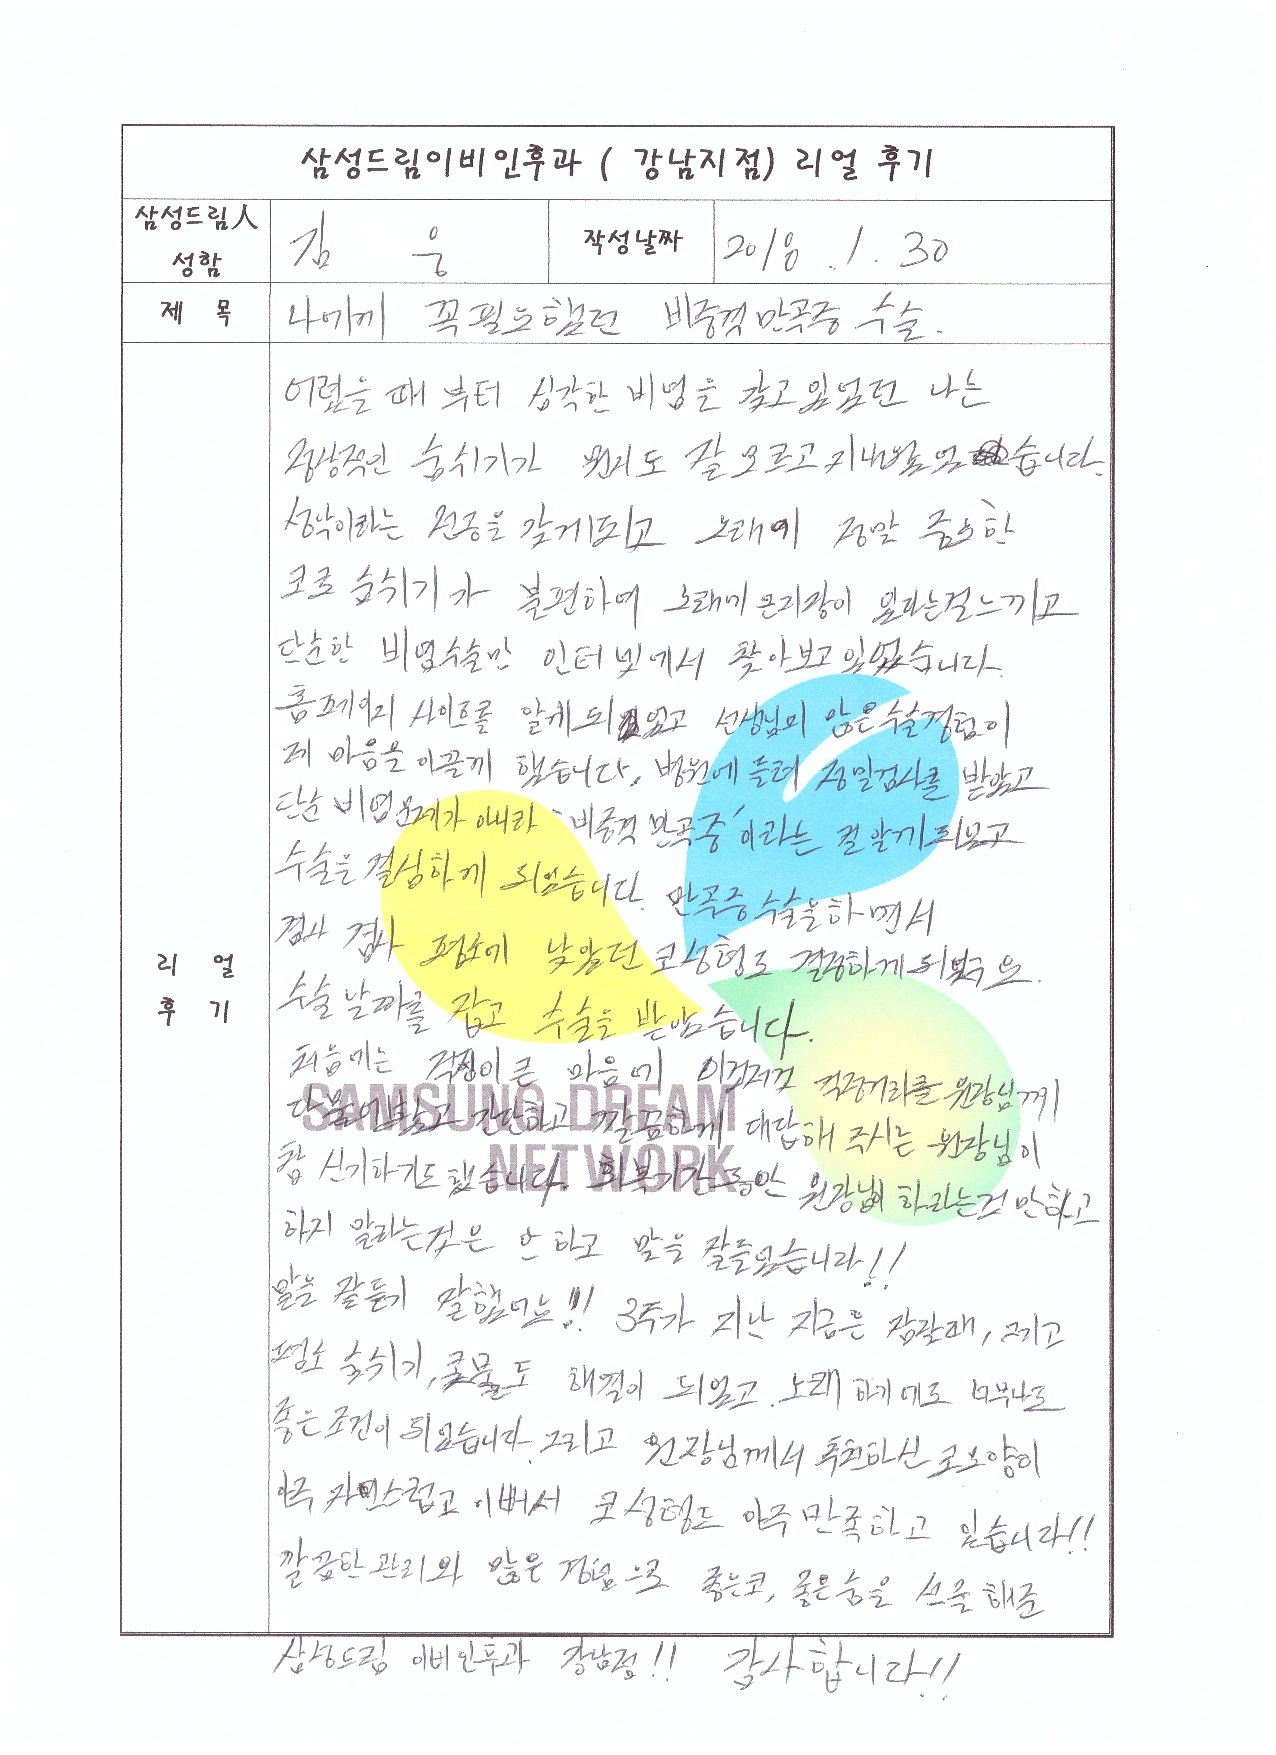 삼성드림이비인후과 ( 강남지점) 리얼 후기
삼성드림人 성함
김 웅
작성날짜
2018 . 1 . 30
제 목
나에게 꼭필요했던 비중격만곡증 수술.
리 얼 후 기
어렸을 때 부터 심각한 비염을 갖고있었던 나는
정상적인 숨쉬기가 뭔지도 잘모르고지내었습니다.
성악이라는 전공을 갖게되고 노래에 정말 중요한
코로 숨쉬기가 불편하여 노래에큰지장이 있다는걸느끼고
단순한 비염수술만 인터넷에서 찾아보고있었습니다.
홈페이지 사이트를 알게 되었고 선생님의 많은수술경험이
제 마음을 이끌게 했습니다. 병원에 들려 정밀검사를 받았고
단순 비염문제가 아니라 '비중격만곡증'이라는 걸알게되었고
수술을 결심하게 되었습니다. 만곡증수술을하면서
겸사 겸사 평소에 낮았던 코성형도 결정하게되었구요.
수술날짜를 잡고 수술을 받았습니다.
처음에는 걱정이큰 마음에 이것저것 걱정거리를 원장님께
다 물어봤고 간단하고 깔끔하게 대답해 주시는 원장님이
참 신기하기도했습니다. 회복기간동안 원장님이 하라는것만하고
하지 말라는것은 안하고 말을 잘들었습니다!!
말을 잘듣기 잘했어요!! 3주가 지난 지금은 잠잘때, 그리고
평소 숨쉬기, 콧물도 해결이 되었고 노래하기에도 너무나도
좋은조건이 되었습니다. 그리고 원장님께서 추천하신 코모양이
아주 자연스럽고 이뻐서 코성형도 아주만족하고 있습니다!!
깔끔한관리와 많은 경험으로 좋은코, 좋은숨을 선물해준
삼성드림 이비인후과 강남점!! 감사합니다!!
SAMSUNG DREAM
NETWORK